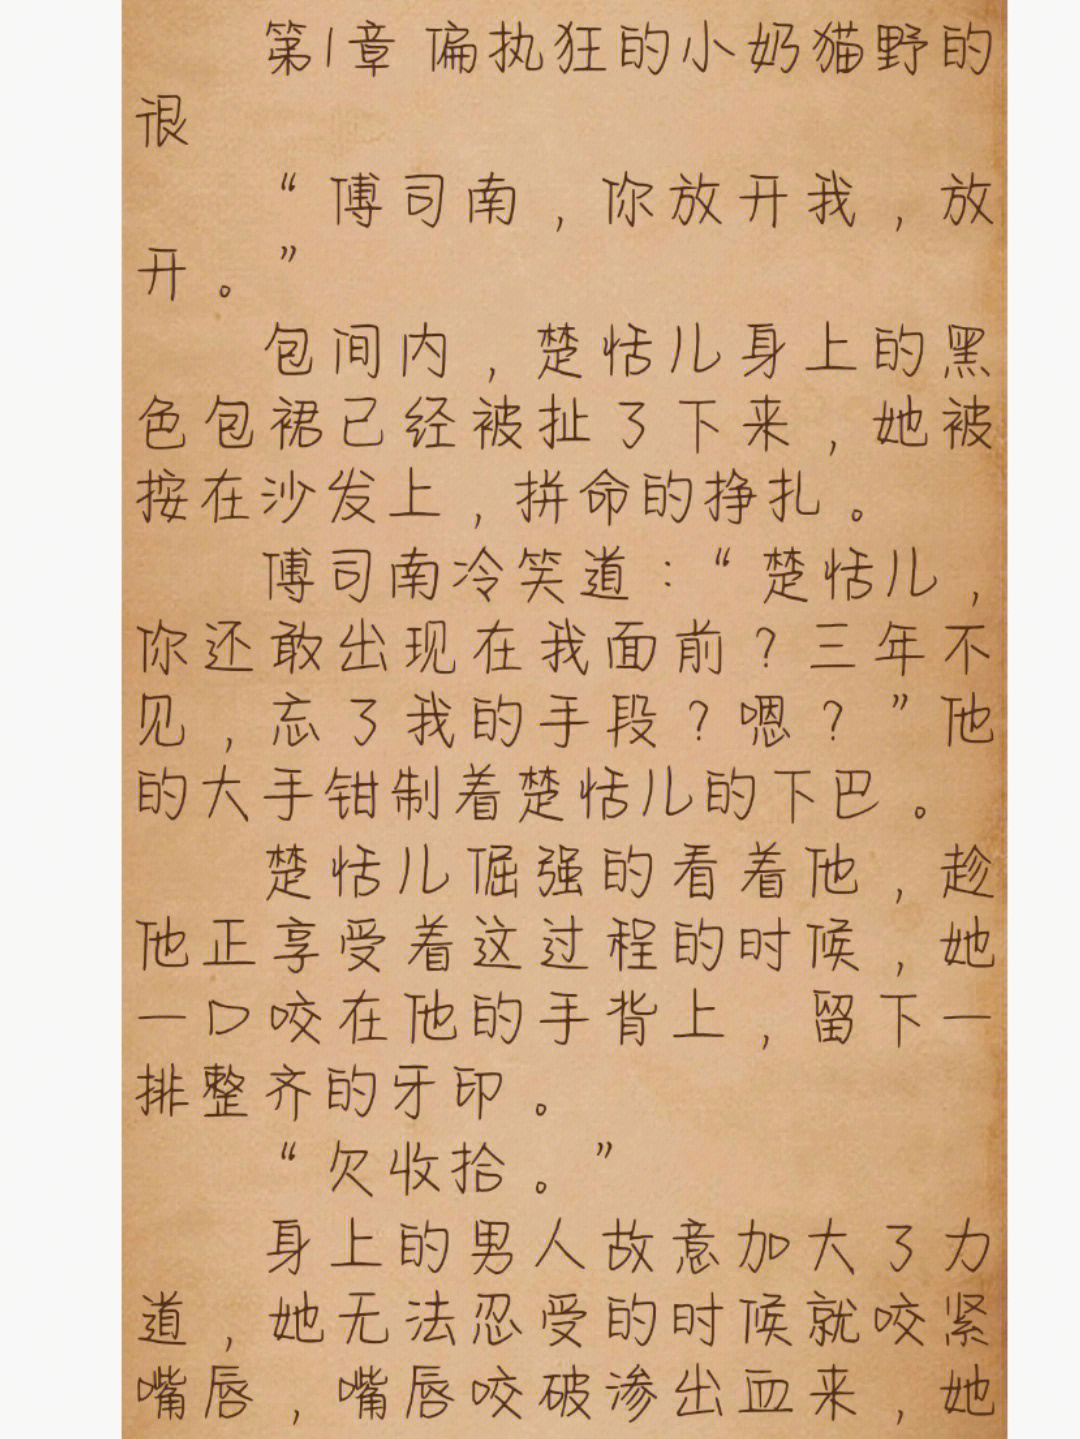 第1章 偏执狂的小奶猫野的
很
“傅司南，你放开我，放
开。”
包间内，楚恬儿身上的黑
色包裙已经被扯了下来，她被
按在沙发上，拼命的挣扎。
傅司南冷笑道：“楚恬儿，
你还敢出现在我面前？三年不
见，忘了我的手段？嗯？”他
的大手钳制着楚恬儿的下巴。
楚恬儿倔强的看着他，趁
他正享受着这过程的时候，她
一口咬在他的手背上，留下一
排整齐的牙印。
“欠收拾。”
身上的男人故意加大了力
道，她无法忍受的时候就咬紧
嘴唇，嘴唇咬破渗出血来，她